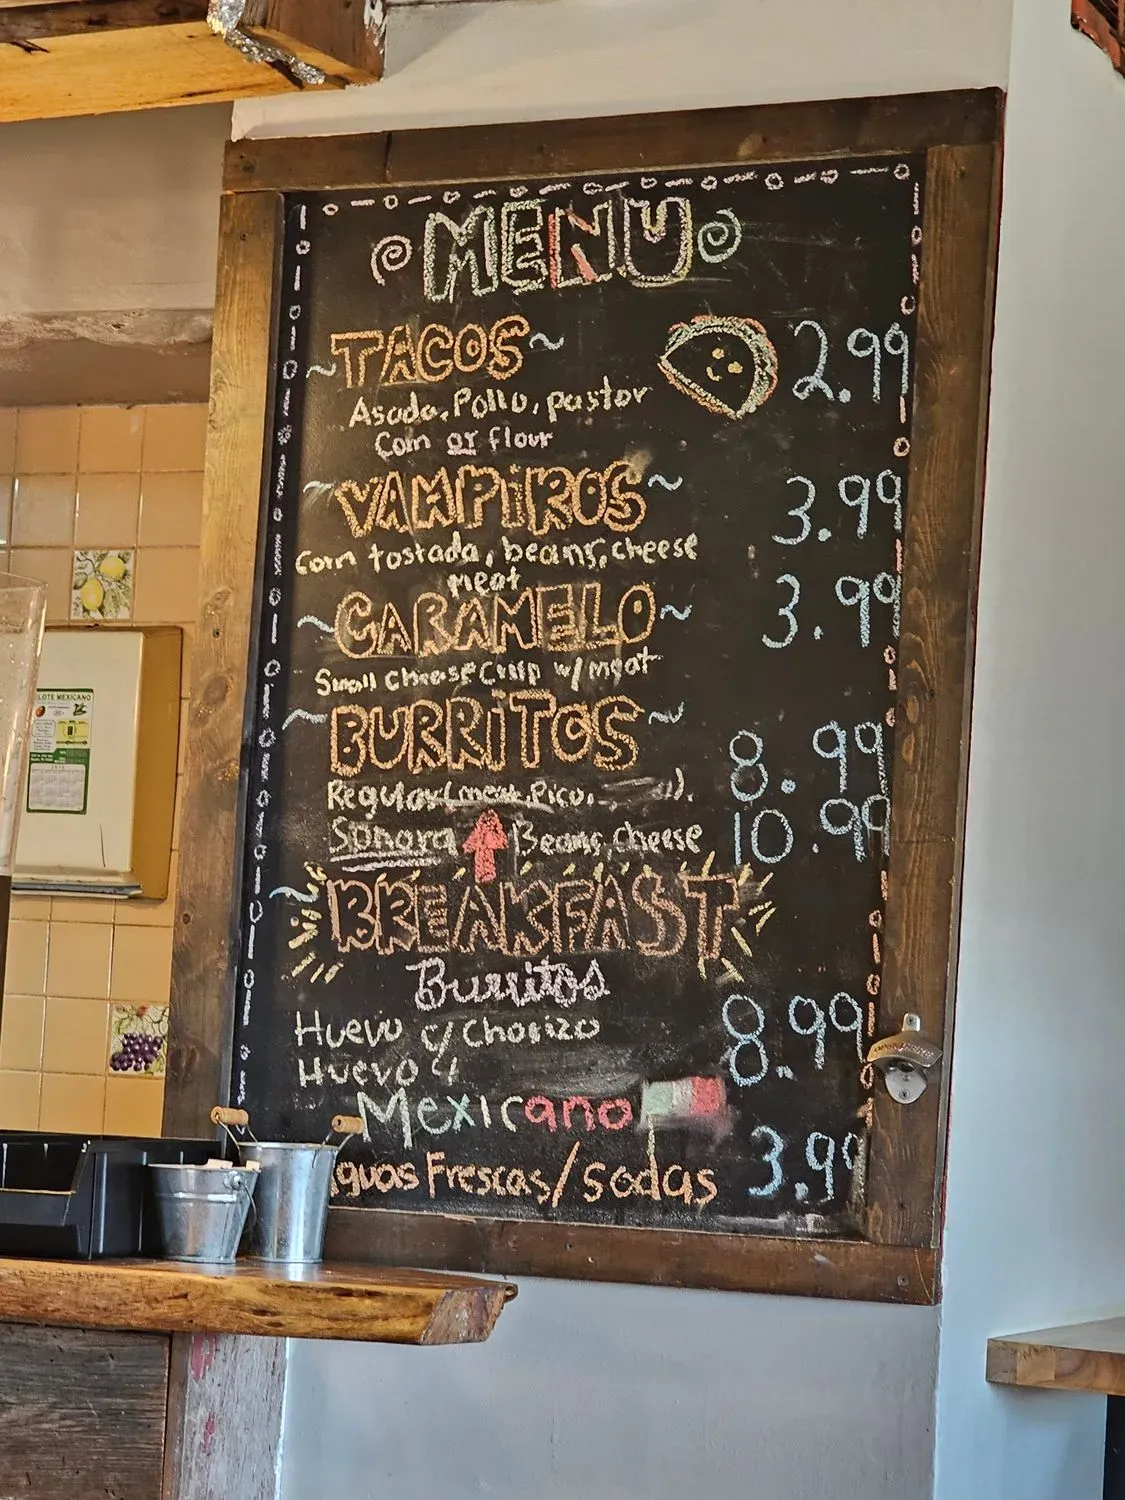 MENU
TACOS 2.99
Asada, Pollo, pastor
Corn or flour
VAMPiROS 3.99
Corn tostada, beans, cheese
meat
CARAMELO 3.99
Small cheese crisp w/ meat
BURRiTOS
Regular (meat, Pico, 8.99
Sonora Beans, cheese 10.99
BREAKFAST
Burritos
Huevo c/ Chorizo 8.99
Huevo c/ 8.
Mexicano
guas Frescas/sodas 3.99
LOTE MEXICANO